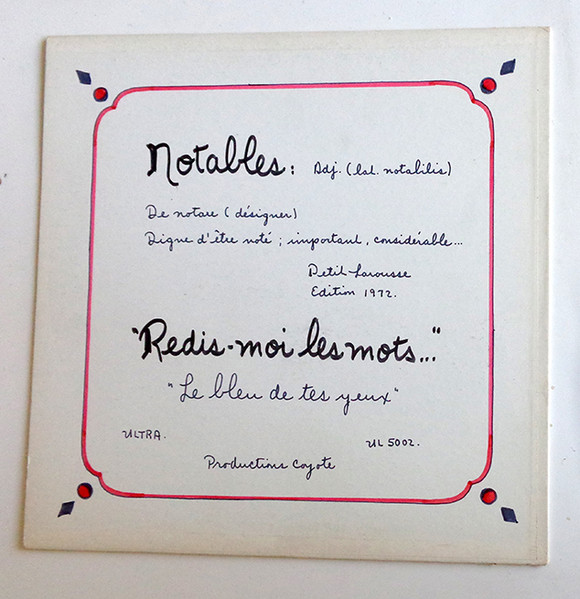 Notables : Adj. (lat. notabilis)
De notare (désigner)
Digne d'être noté ; important, considérable...
Petit Larousse
Edition 1972.
"Redis-moi les mots..."
"Le bleu de tes yeux"
ULTRA.
UL 5002.
Productions Coyote